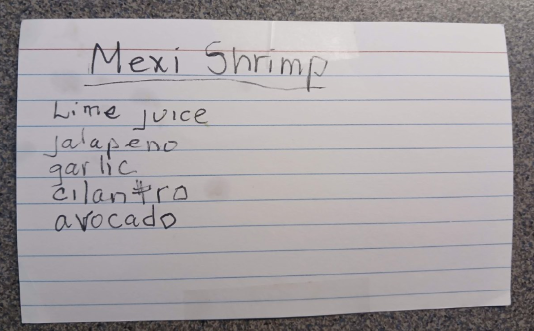 Mexi Shrimp
Lime juice
jalapeno
garlic
cilantro
avocado